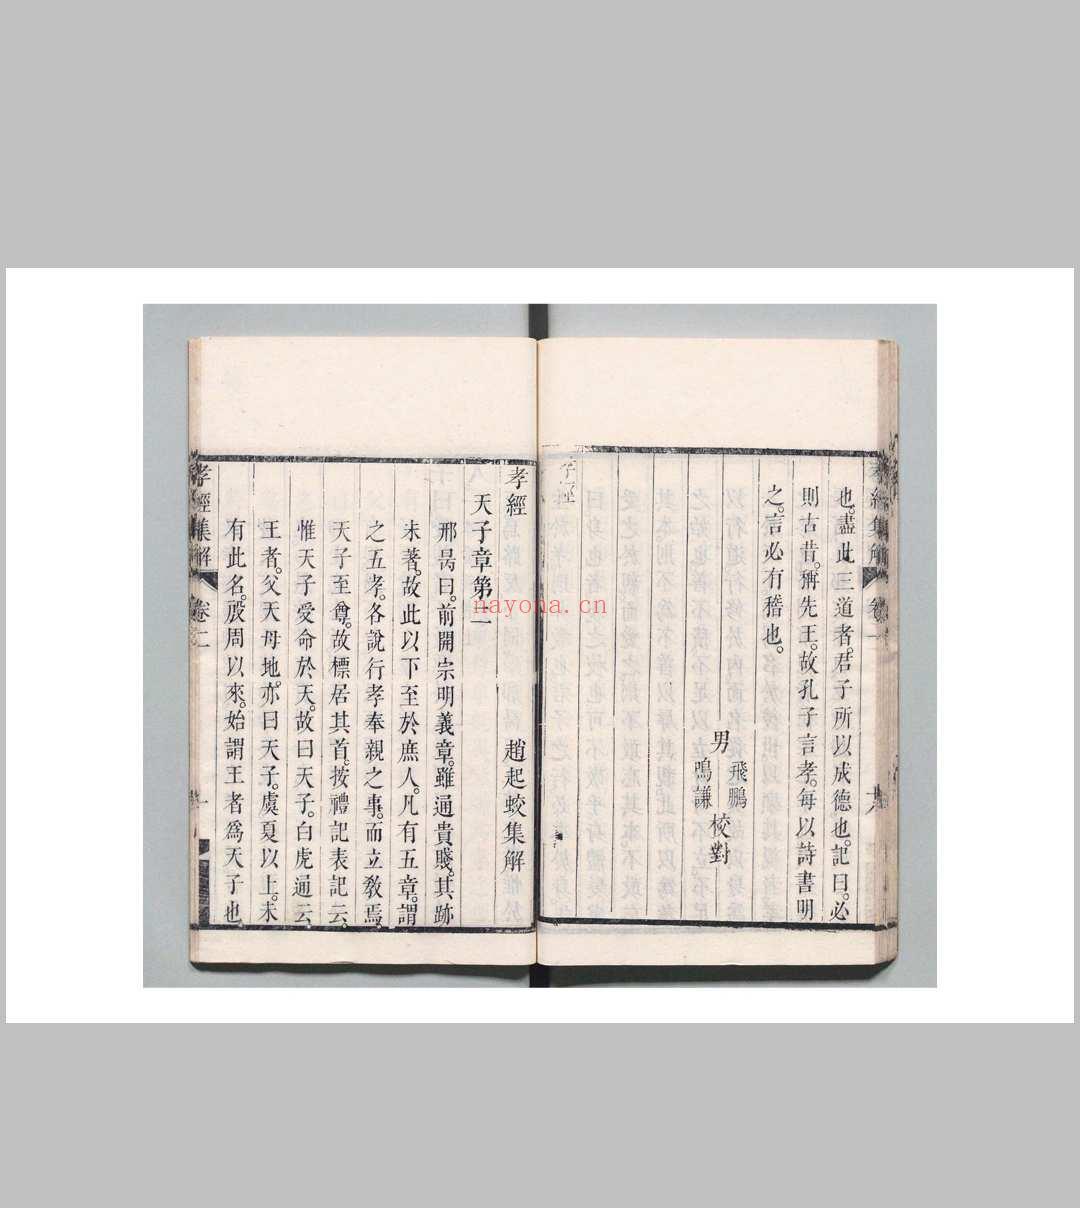 也。盡此三道者。君子所以成德也。記曰。必
則古昔。稱先王。故孔子言孝。每以詩書明
之。言必有稽也。
男
飛鵬
鳴謙
校對
孝經
趙起蛟集解
天子章第二
邢昺曰。前開宗明義章。雖通貴賤。其跡
未著。故此以下至於庶人。凡有五章。謂
之五孝。各說行孝奉親之事。而立敎焉。
天子至尊。故標居其首。按禮記表記云。
惟天子受命於天。故曰天子。白虎通云。
王者。父天母地。亦曰天子。虞夏以上。未
有此名。殷周以來。始謂王者爲天子也。
孝經集解
卷二
一
nayona.cn